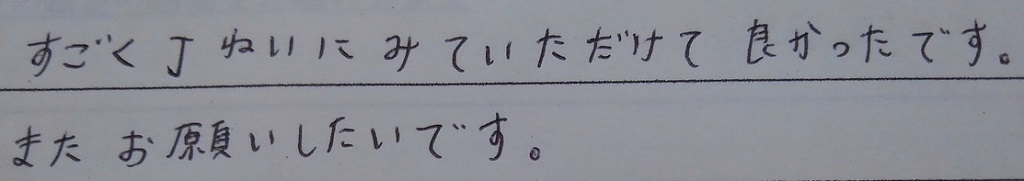 すごく丁ねいにみていただけて良かったです。
またお願いしたいです。